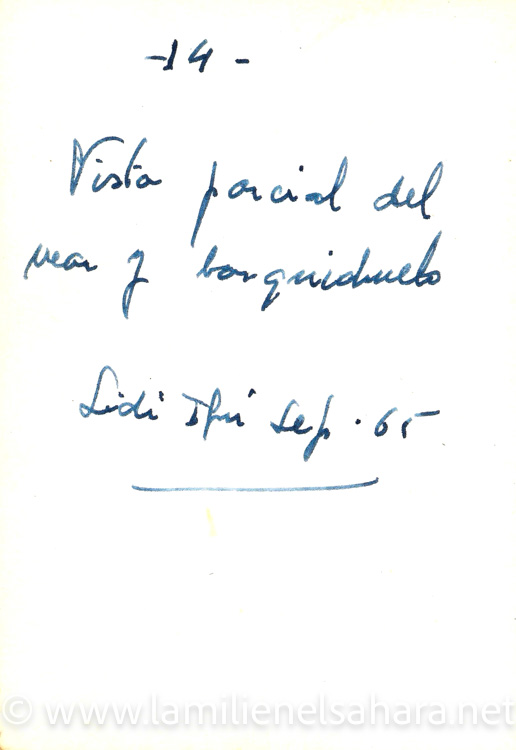 -14-
Vista parcial del
mar y barquichuelo
Sidi Ifni Sep. 65
© www.lamilienelsahara.net